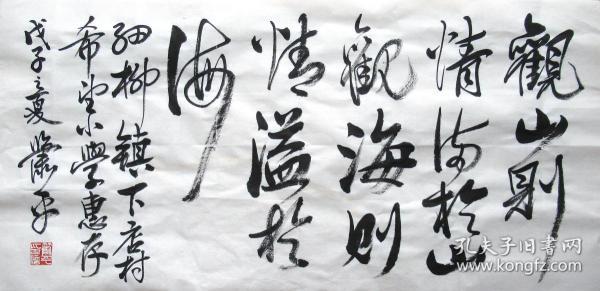 觀山則
情满於山
觀海則
情溢於
海
细柳鎮下店村
希望小學惠存
戊子之夏
孔夫子旧书网
www.kongfz.com